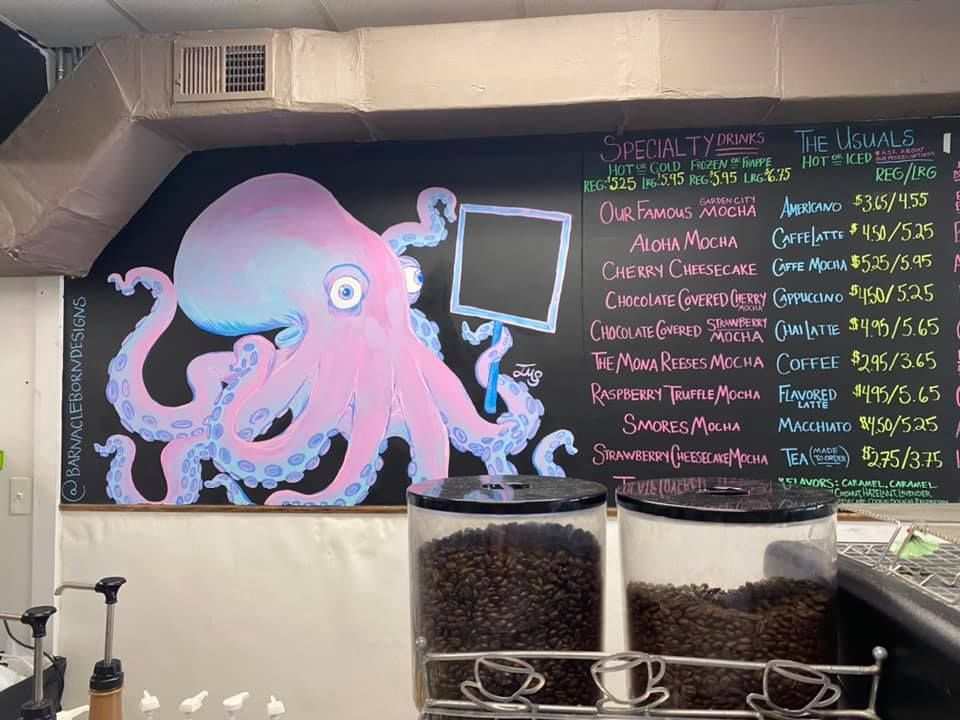 @BARNACLEBORNDESIGNS
SPECIALTY DRINKS
HOT OR COLD FROZEN OR FRAPPE
REG: $5.25 LRG: $5.95 REG: $5.95 LRG: $6.75
OUR FAMOUS GARDEN CITY MOCHA
ALOHA MOCHA
CHERRY CHEESECAKE
CHOCOLATE COVERED CHERRY MOCHA
CHOCOLATE COVERED STRAWBERRY MOCHA
THE MONA REESES MOCHA
RASPBERRY TRUFFLE MOCHA
SMORES MOCHA
STRAWBERRY CHEESECAKE MOCHA
THE USUALS
HOT OR ICED *ASK ABOUT OUR FROZEN OPTIONS
REG/LRG
AMERICANO $3.65/4.55
CAFFE LATTE $4.50/5.25
CAFFE MOCHA $5.25/5.95
CAPPUCCINO $4.50/5.25
CHAI LATTE $4.95/5.65
COFFEE $2.95/3.65
FLAVORED LATTE $4.95/5.65
MACCHIATO $4.50/5.25
TEA (MADE TO ORDER) $2.75/3.75
*FLAVORS: CARAMEL, CARAMEL
COCONUT, HAZELNUT, LAVENDER,